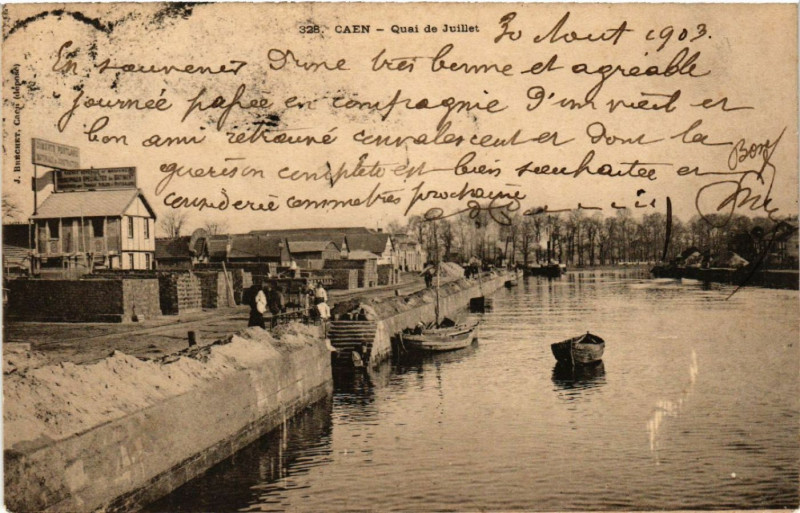 328. CAEN - Quai de Juillet
30 Aout 1903.
En souvenir d'une très bonne et agréable
journée passée en compagnie d'un vieil et
bon ami retrouvé convalescent et dont la
guérison complète est bien souhaitée et
considérée comme très prochaine
J. BRECHET, CAEN (déposé)